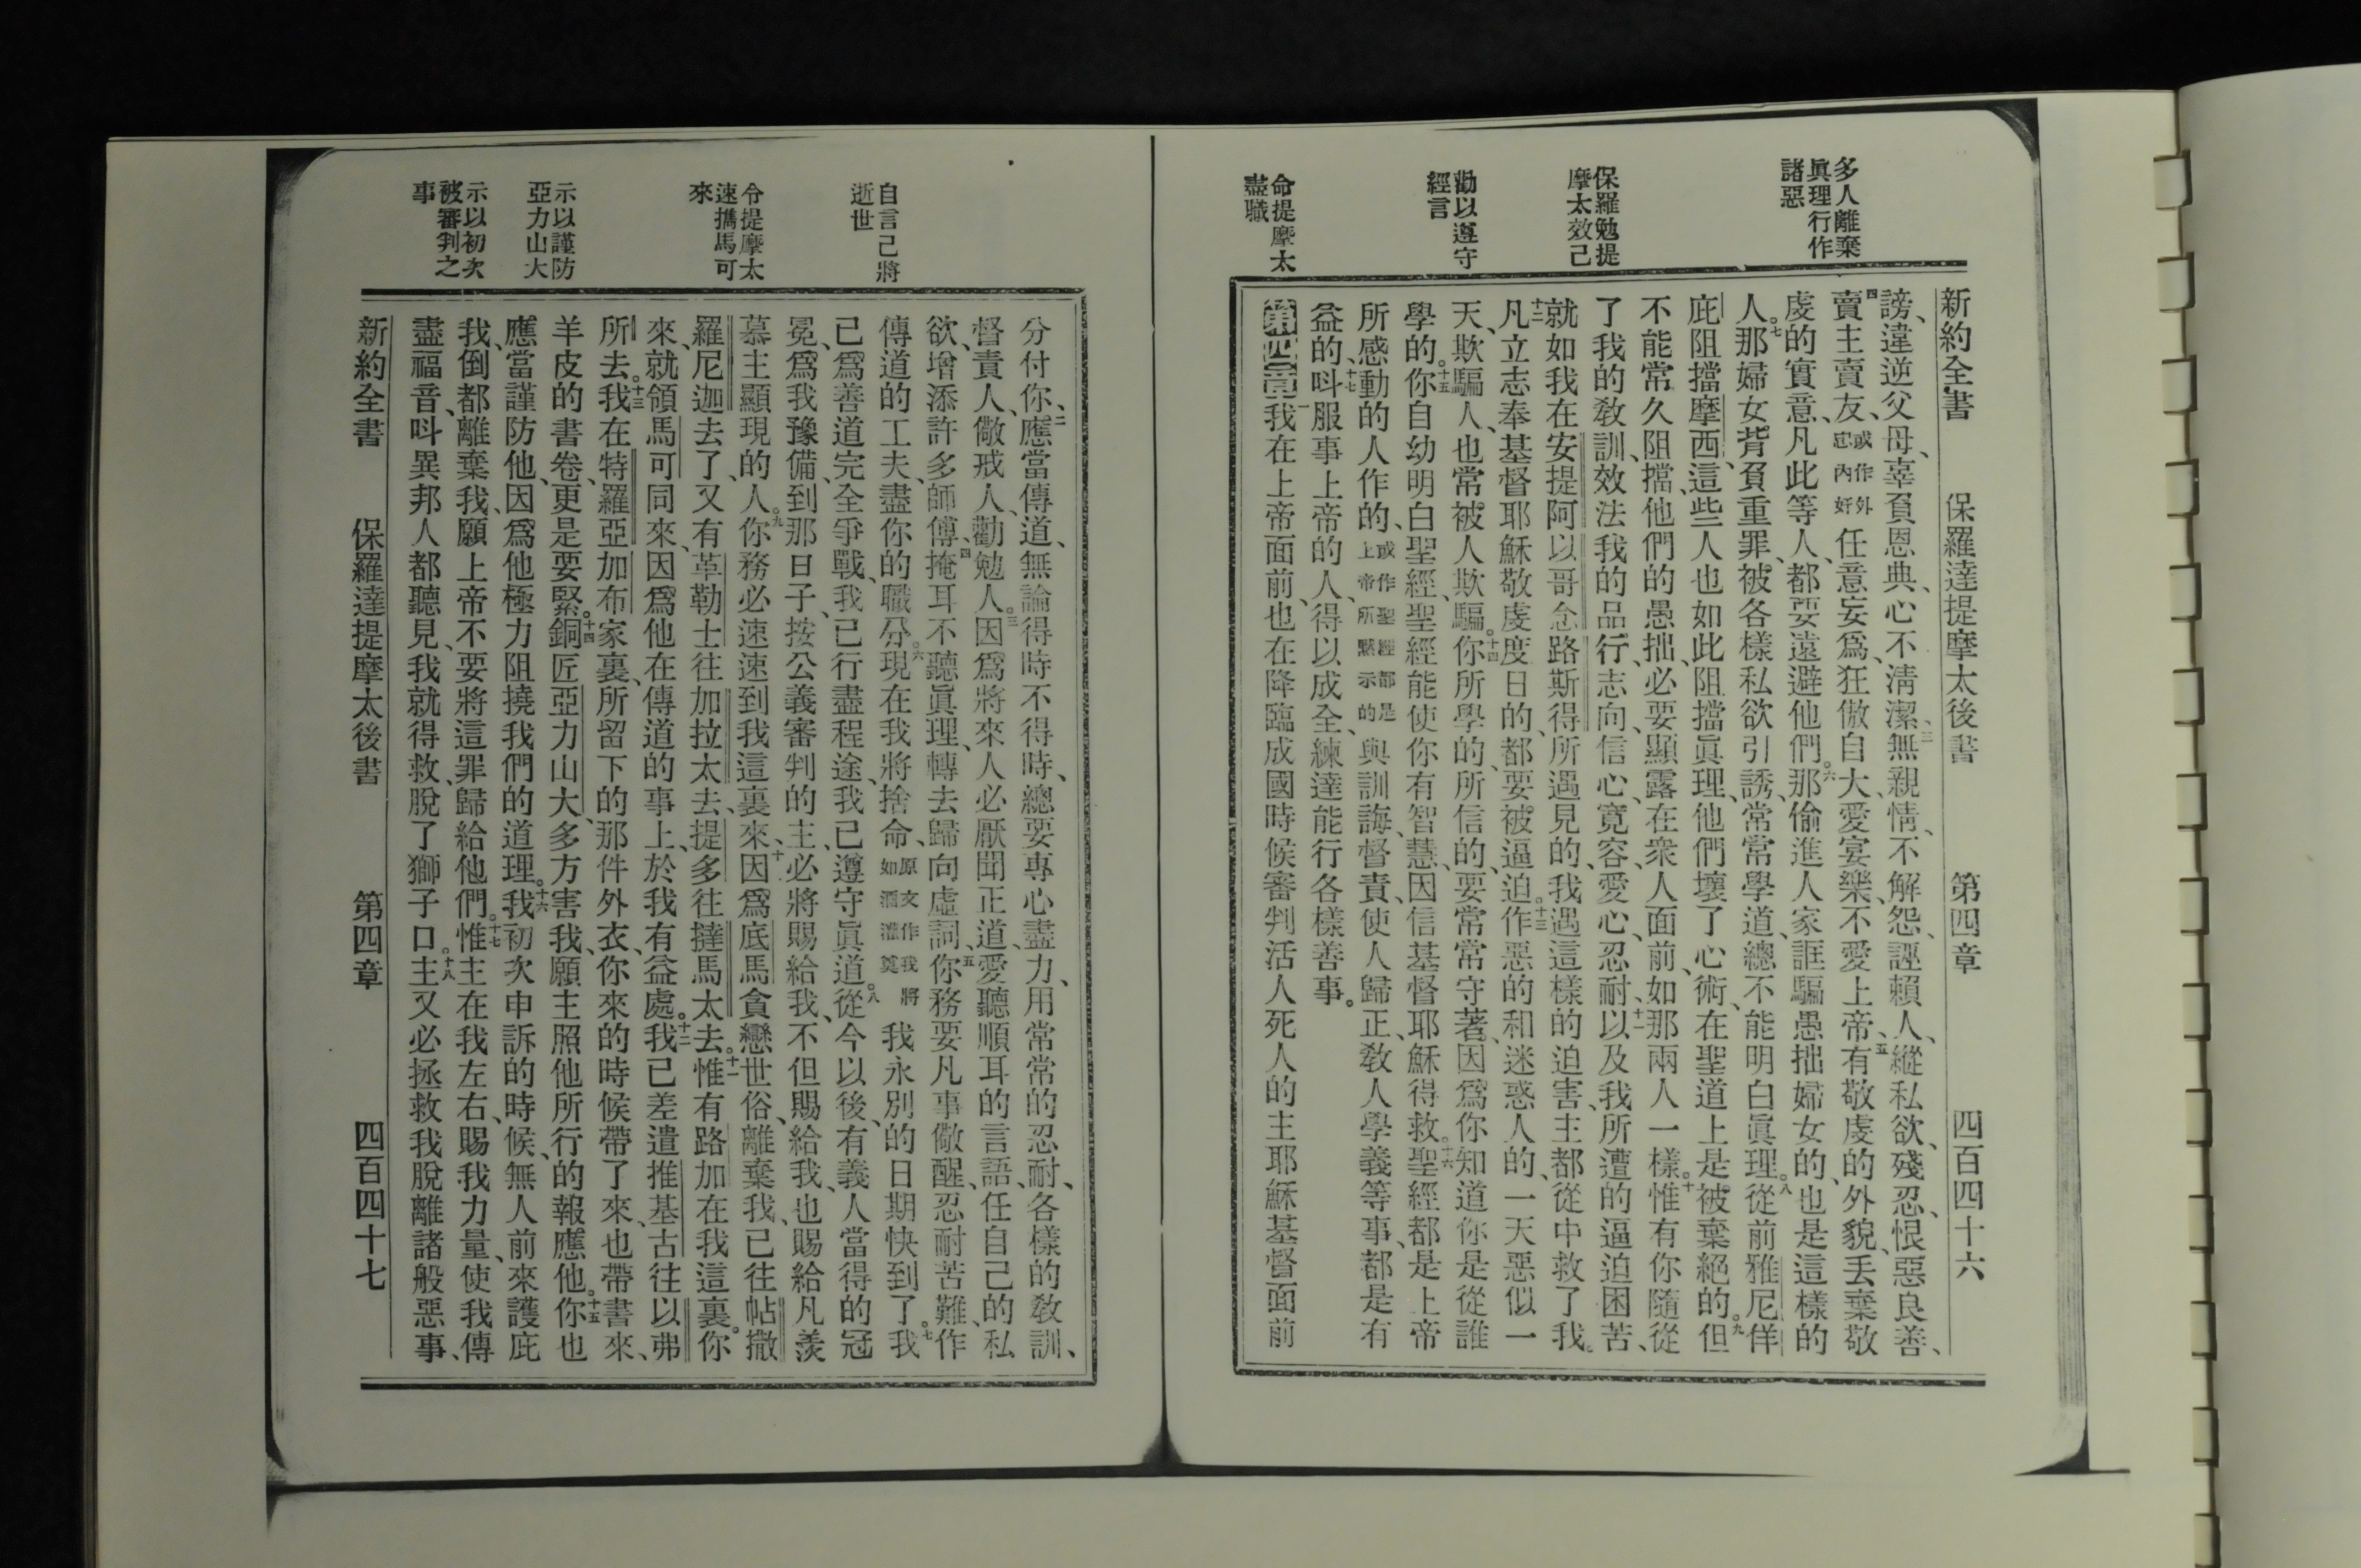 多人離棄
眞理行作
諸惡
保羅勉提
摩太效己
勸以遵守
經言
命提摩太
盡職
新約全書　保羅達提摩太後書　第四章　四百四十六
謗、違逆父母、辜負恩典、心不清潔、三無親情、不解怨、誣賴人、縱私欲、殘忍、恨惡良善、
四賣主賣友、或作外忠內奸任意妄爲、狂傲自大、愛宴樂、不愛上帝、五有敬虔的外貌、丟棄敬
虔的實意、凡此等人、都要遠避他們。六那偷進人家誆騙愚拙婦女的、也是這樣的
人。七那婦女背負重罪、被各樣私欲引誘、常常學道、總不能明白眞理。八從前雅尼佯
庇阻擋摩西、這些人也如此阻擋眞理、他們壞了心術、在聖道上是被棄絕的。九但
不能常久阻擋、他們的愚拙、必要顯露在衆人面前、如那兩人一樣。十惟有你隨從
了我的敎訓、效法我的品行、志向、信心、寬容、愛心、忍耐、十一以及我所遭的逼迫困苦、
就如我在安提阿以哥念路斯得所遇見的、我遇這樣的迫害、主都從中救了我。
十二凡立志奉基督耶穌敬虔度日的、都要被逼迫。十三作惡的和迷惑人的、一天惡似一
天、欺騙人、也常被人欺騙。十四你所學的、所信的、要常常守著、因爲你知道你是從誰
學的。十五你自幼明白聖經、聖經能使你有智慧、因信基督耶穌得救。十六聖經都是上帝
所感動的人作的、或作聖經都是上帝所默示的與訓誨、督責、使人歸正、敎人學義等事、都是有
益的、十七呌服事上帝的人、得以成全、練達能行各樣善事。
第四章一我在上帝面前、也在降臨成國時候審判活人死人的主耶穌基督面前
自言己將
逝世
令提摩太
速攜馬可
來
示以謹防
亞力山大
示以初次
被審判之
事
分付你、二應當傳道、無論得時不得時、總要專心盡力、用常常的忍耐、各樣的敎訓、
督責人、儆戒人、勸勉人。三因爲將來人必厭聞正道、愛聽順耳的言語、任自己的私
欲、增添許多師傅、四掩耳不聽眞理、轉去歸向虛詞、五你務要凡事儆醒、忍耐苦難、作
傳道的工夫、盡你的職分。六現在我將捨命、原文作我將如酒灌奠我永別的日期快到了。七我
已爲善道完全爭戰、我已行盡程途、我已遵守眞道。八從今以後、有義人當得的冠
冕、爲我豫備、到那日子、按公義審判的主、必將賜給我、不但賜給我、也賜給凡羨
慕主顯現的人。九你務必速速到我這裏來、十因爲底馬貪戀世俗、離棄我、已往帖撒
羅尼迦去了、又有革勒士往加拉太去、提多往撻馬太去。十一惟有路加在我這裏。你
來、就領馬可同來、因爲他在傳道的事上、於我有益處。十二我已差遣推基古往以弗
所去。十三我在特羅亞加布家裏、所留下的那件外衣、你來的時候帶了來、也帶書來、
羊皮的書卷、更是要緊。十四銅匠亞力山大、多方害我、願主照他所行的報應他。十五你也
應當謹防他、因爲他極力阻撓我們的道理。十六我初次申訴的時候、無人前來護庇
我、倒都離棄我、願上帝不要將這罪歸給他們。十七惟主在我左右、賜我力量、使我傳
盡福音、呌異邦人都聽見、我就得救、脫了獅子口。十八主又必拯救我脫離諸般惡事、
新約全書　保羅達提摩太後書　第四章　四百四十七